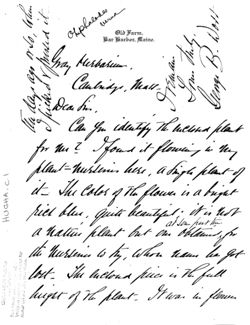 Omphalodes
verna
Old Farm,
Bar Harbor, Maine.
Gray Herbarium.
Cambridge, Mass.
Dear Sir.
Can you identify the inclosed plant
for me? I found it flowering in my
plant-nurseries here, a single plant of
it. The color of the flower is a bright
rich blue, quite beautiful; it is not
a native plant but one obtained
at some past time
for the nurseries to try, whose name has got
lost. The inclosed piece is the full
height of the plant. It was in flower
ten days ago or so, when
I picked & pressed it.
I remain
Yours truly,
George B. Dorr
HUGHA.C1